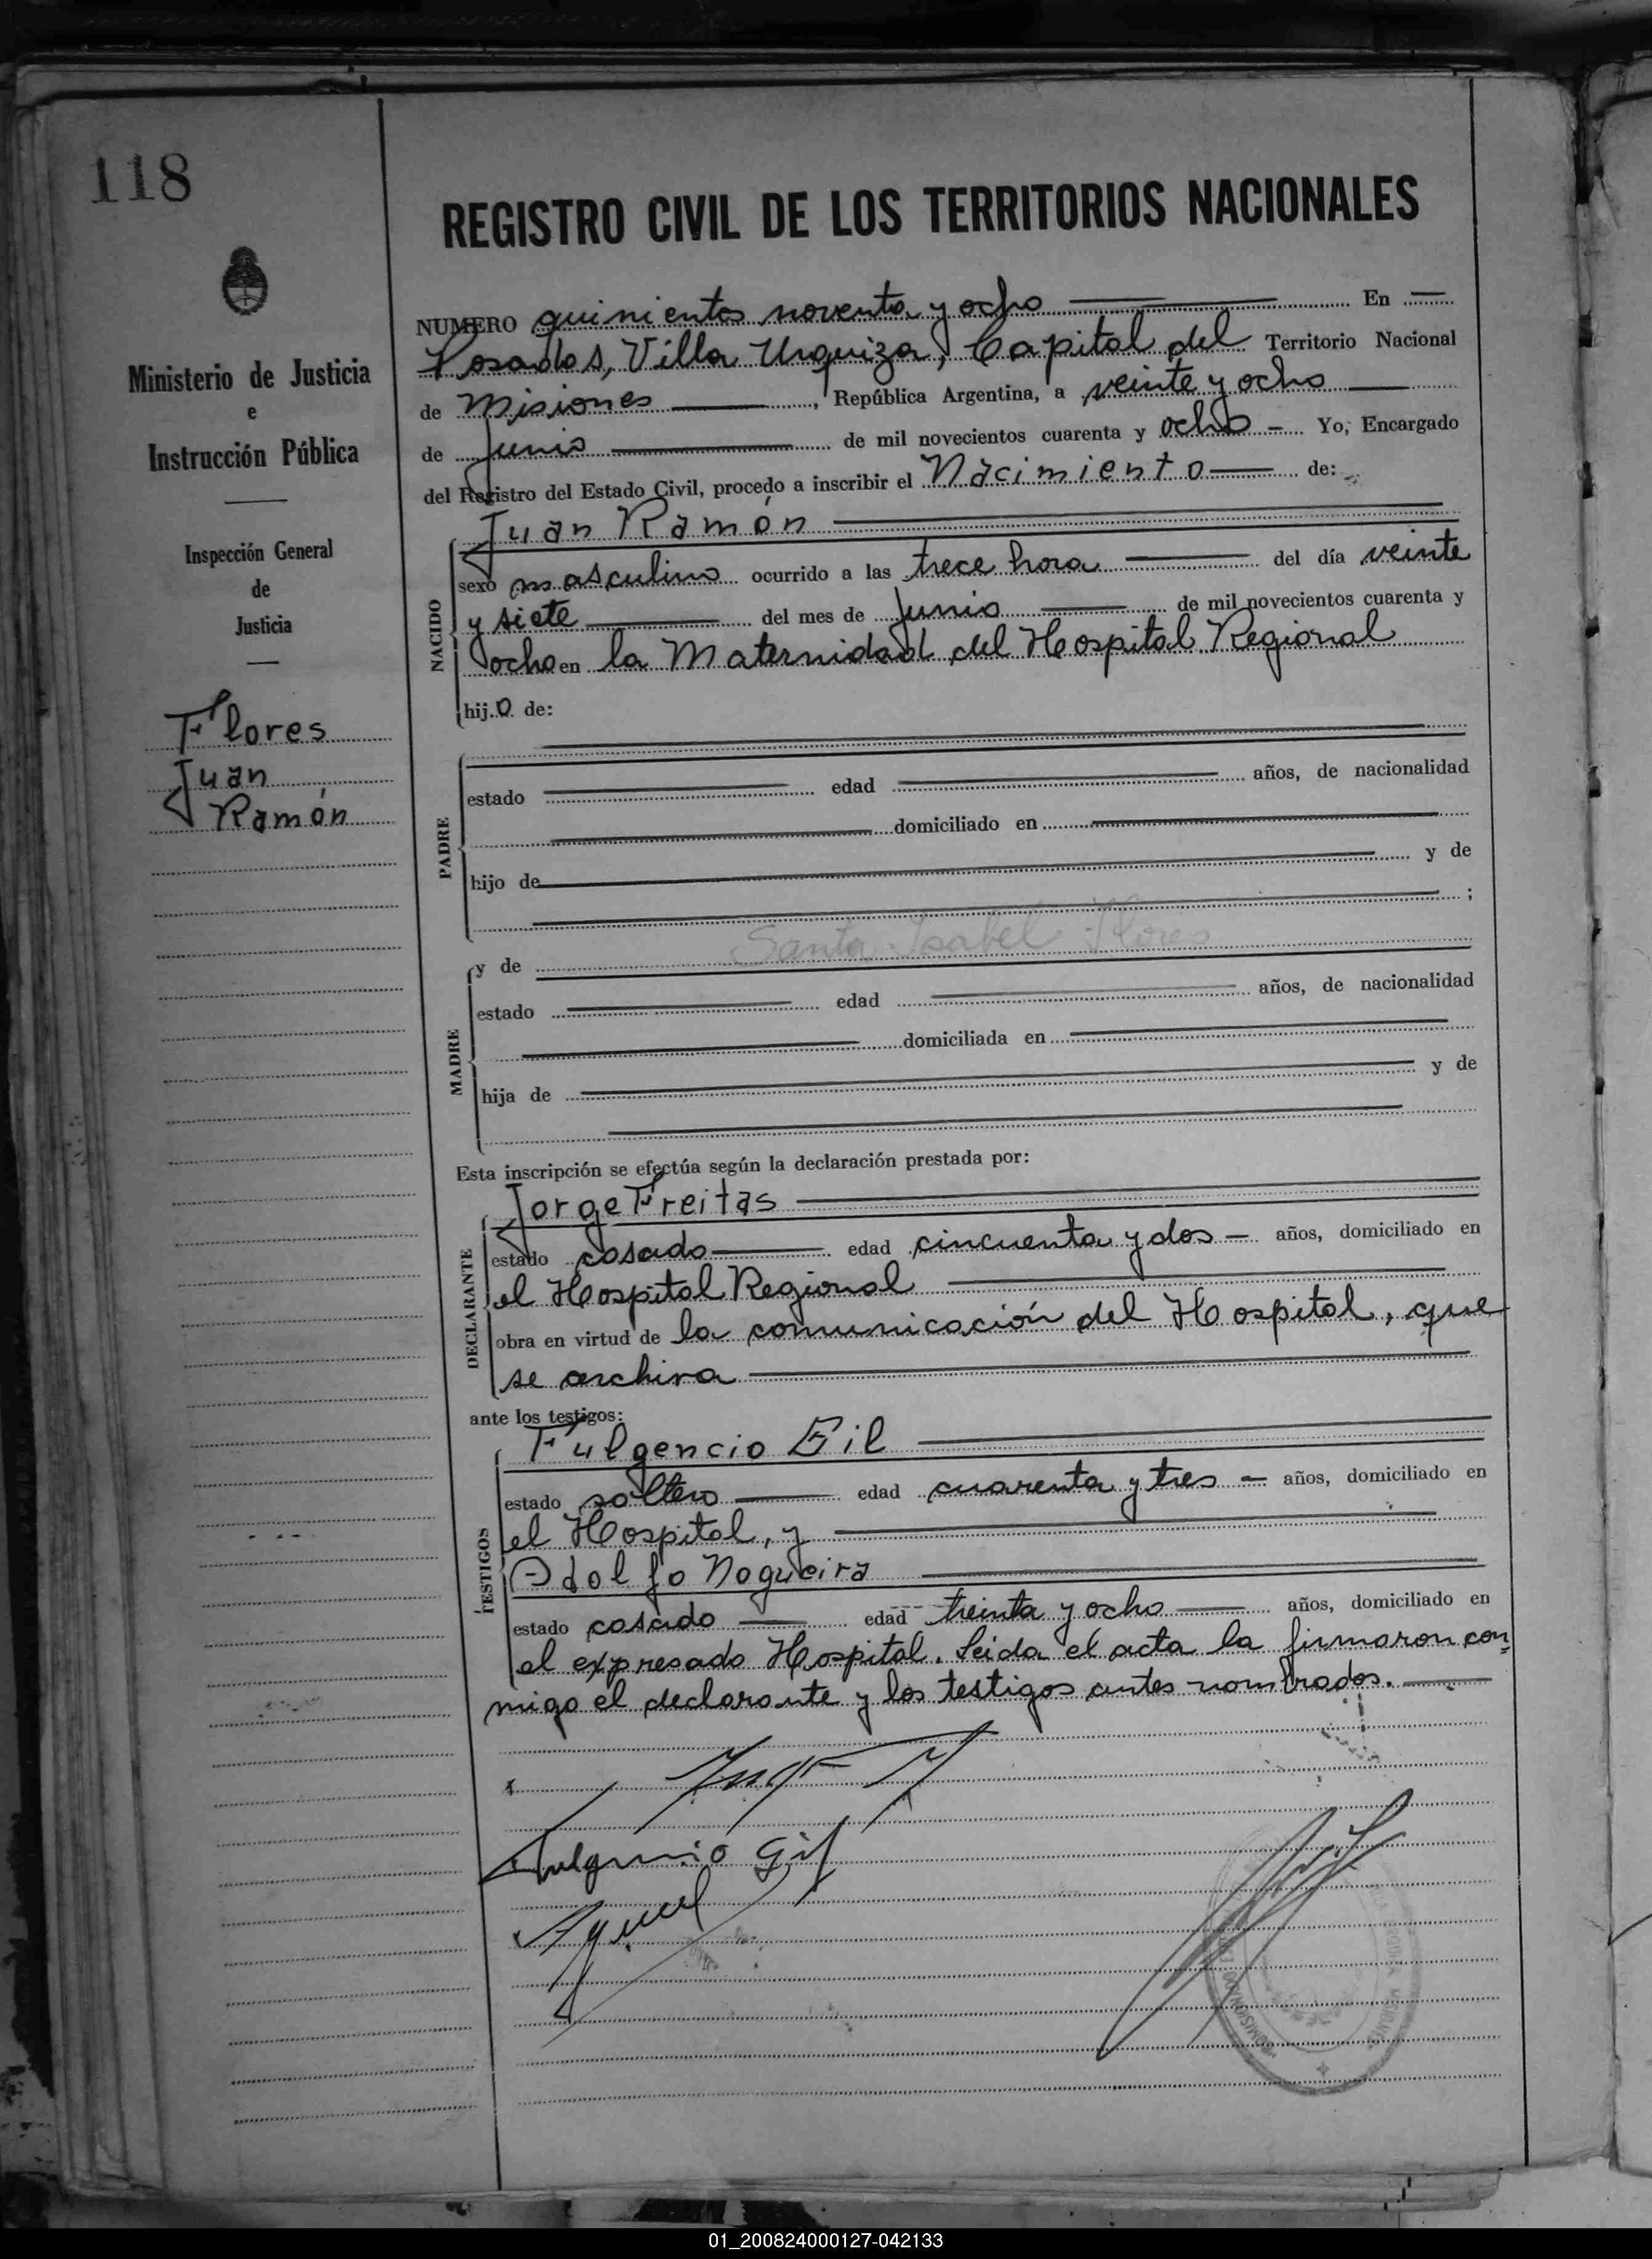 118
Ministerio de Justicia
e
Instrucción Pública
Inspección General
de
Justicia
Flores
Juan
Ramón
REGISTRO CIVIL DE LOS TERRITORIOS NACIONALES
NUMERO quinientos noventa y ocho En
Posadas, Villa Urquiza, Capital del Territorio Nacional
de Misiones, República Argentina, a veinte y ocho
de Junio de mil novecientos cuarenta y ocho Yo, Encargado
del Registro del Estado Civil, procedo a inscribir el Nacimiento de:
NACIDO
Juan Ramón
sexo masculino ocurrido a las trece hora del día veinte
y siete del mes de Junio de mil novecientos cuarenta y
ocho en la Maternidad del Hospital Regional
hijo de:
PADRE
estado edad años, de nacionalidad
domiciliado en
hijo de y de
;
MADRE
y de Santa Isabel Flores
estado edad años, de nacionalidad
domiciliada en
hija de y de
Esta inscripción se efectúa según la declaración prestada por:
DECLARANTE
Jorge Freitas
estado casado edad cincuenta y dos años, domiciliado en
el Hospital Regional
obra en virtud de la comunicación del Hospital, que
se archiva
ante los testigos:
TESTIGOS
Fulgencio Gil
estado soltero edad cuarenta y tres años, domiciliado en
el Hospital, y
Adolfo Nogueira
estado casado edad treinta y ocho años, domiciliado en
el expresado Hospital. Leida el acta la firmaron con=
migo el declarante y los testigos antes nombrados.
Fulgencio Gil
01_200824000127-042133